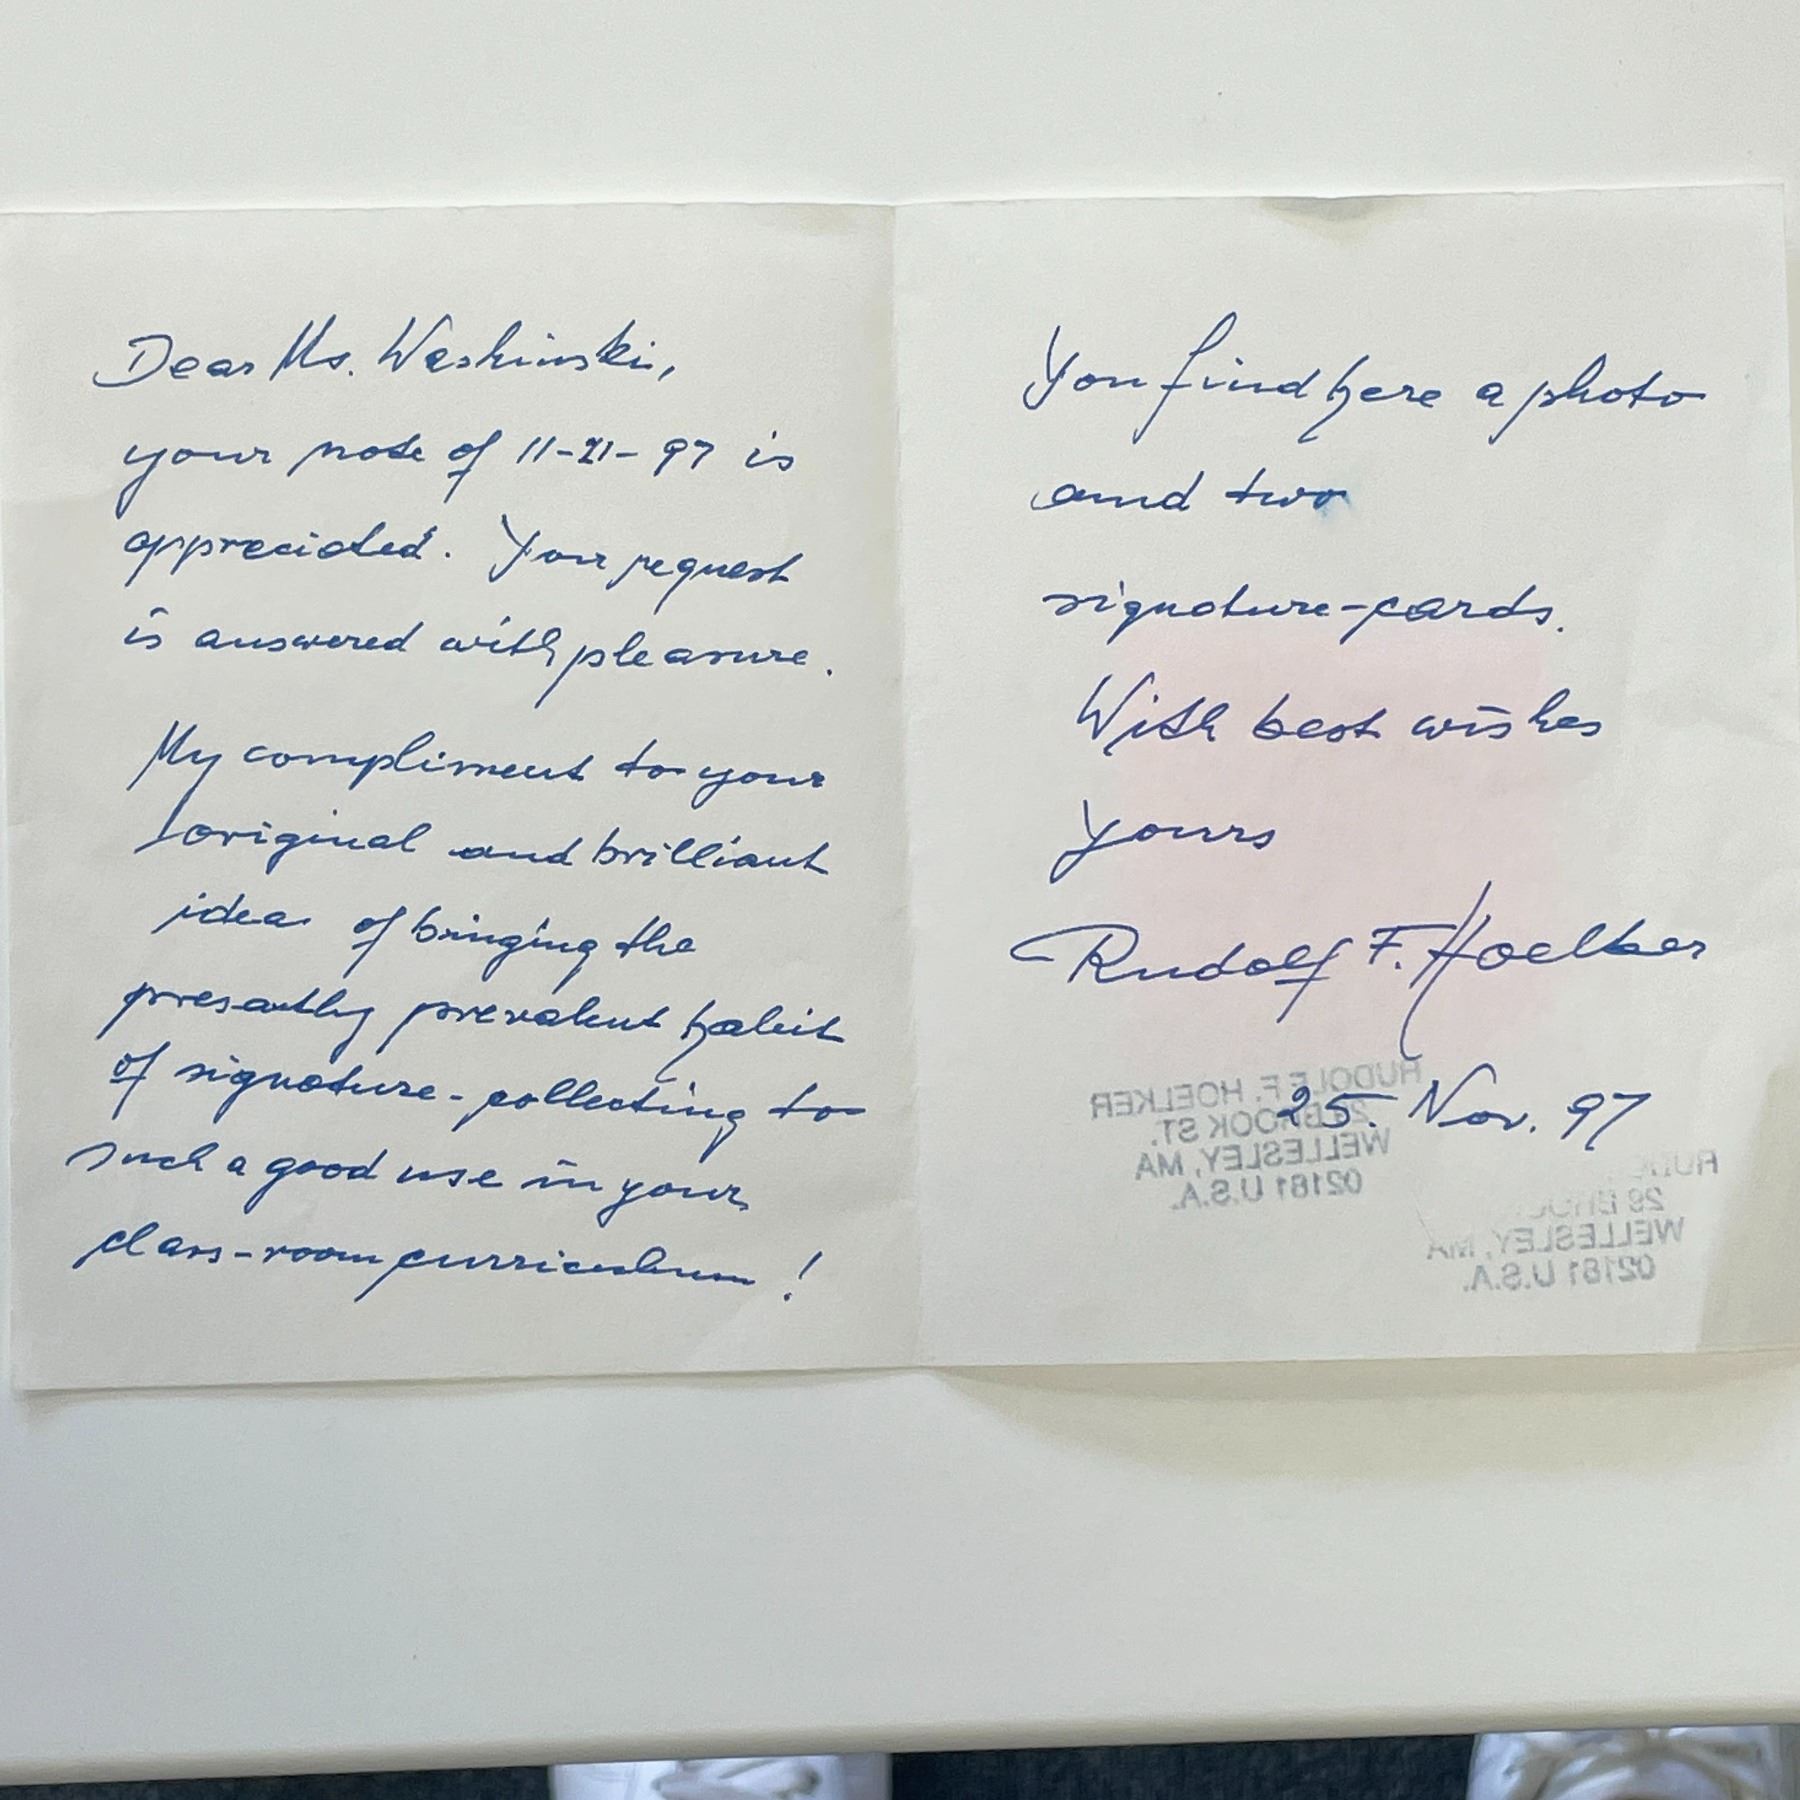 Dear Ms. Washinski,
your note of 11-21-97 is
appreciated. Your request
is answered with pleasure.
My compliment to your
original and brilliant
idea of bringing the
presently prevalent habit
of signature-collecting to
such a good use in your
class-room curriculum!
You find here a photo
and two
signature-cards.
With best wishes
yours
Rudolf F. Hoelker
25. Nov. 97
RUDOLF F. HOELKER
BROOK ST.
WELLESLEY, MA
02181 U.S.A.
WELLESLEY, MA
02181 U.S.A.